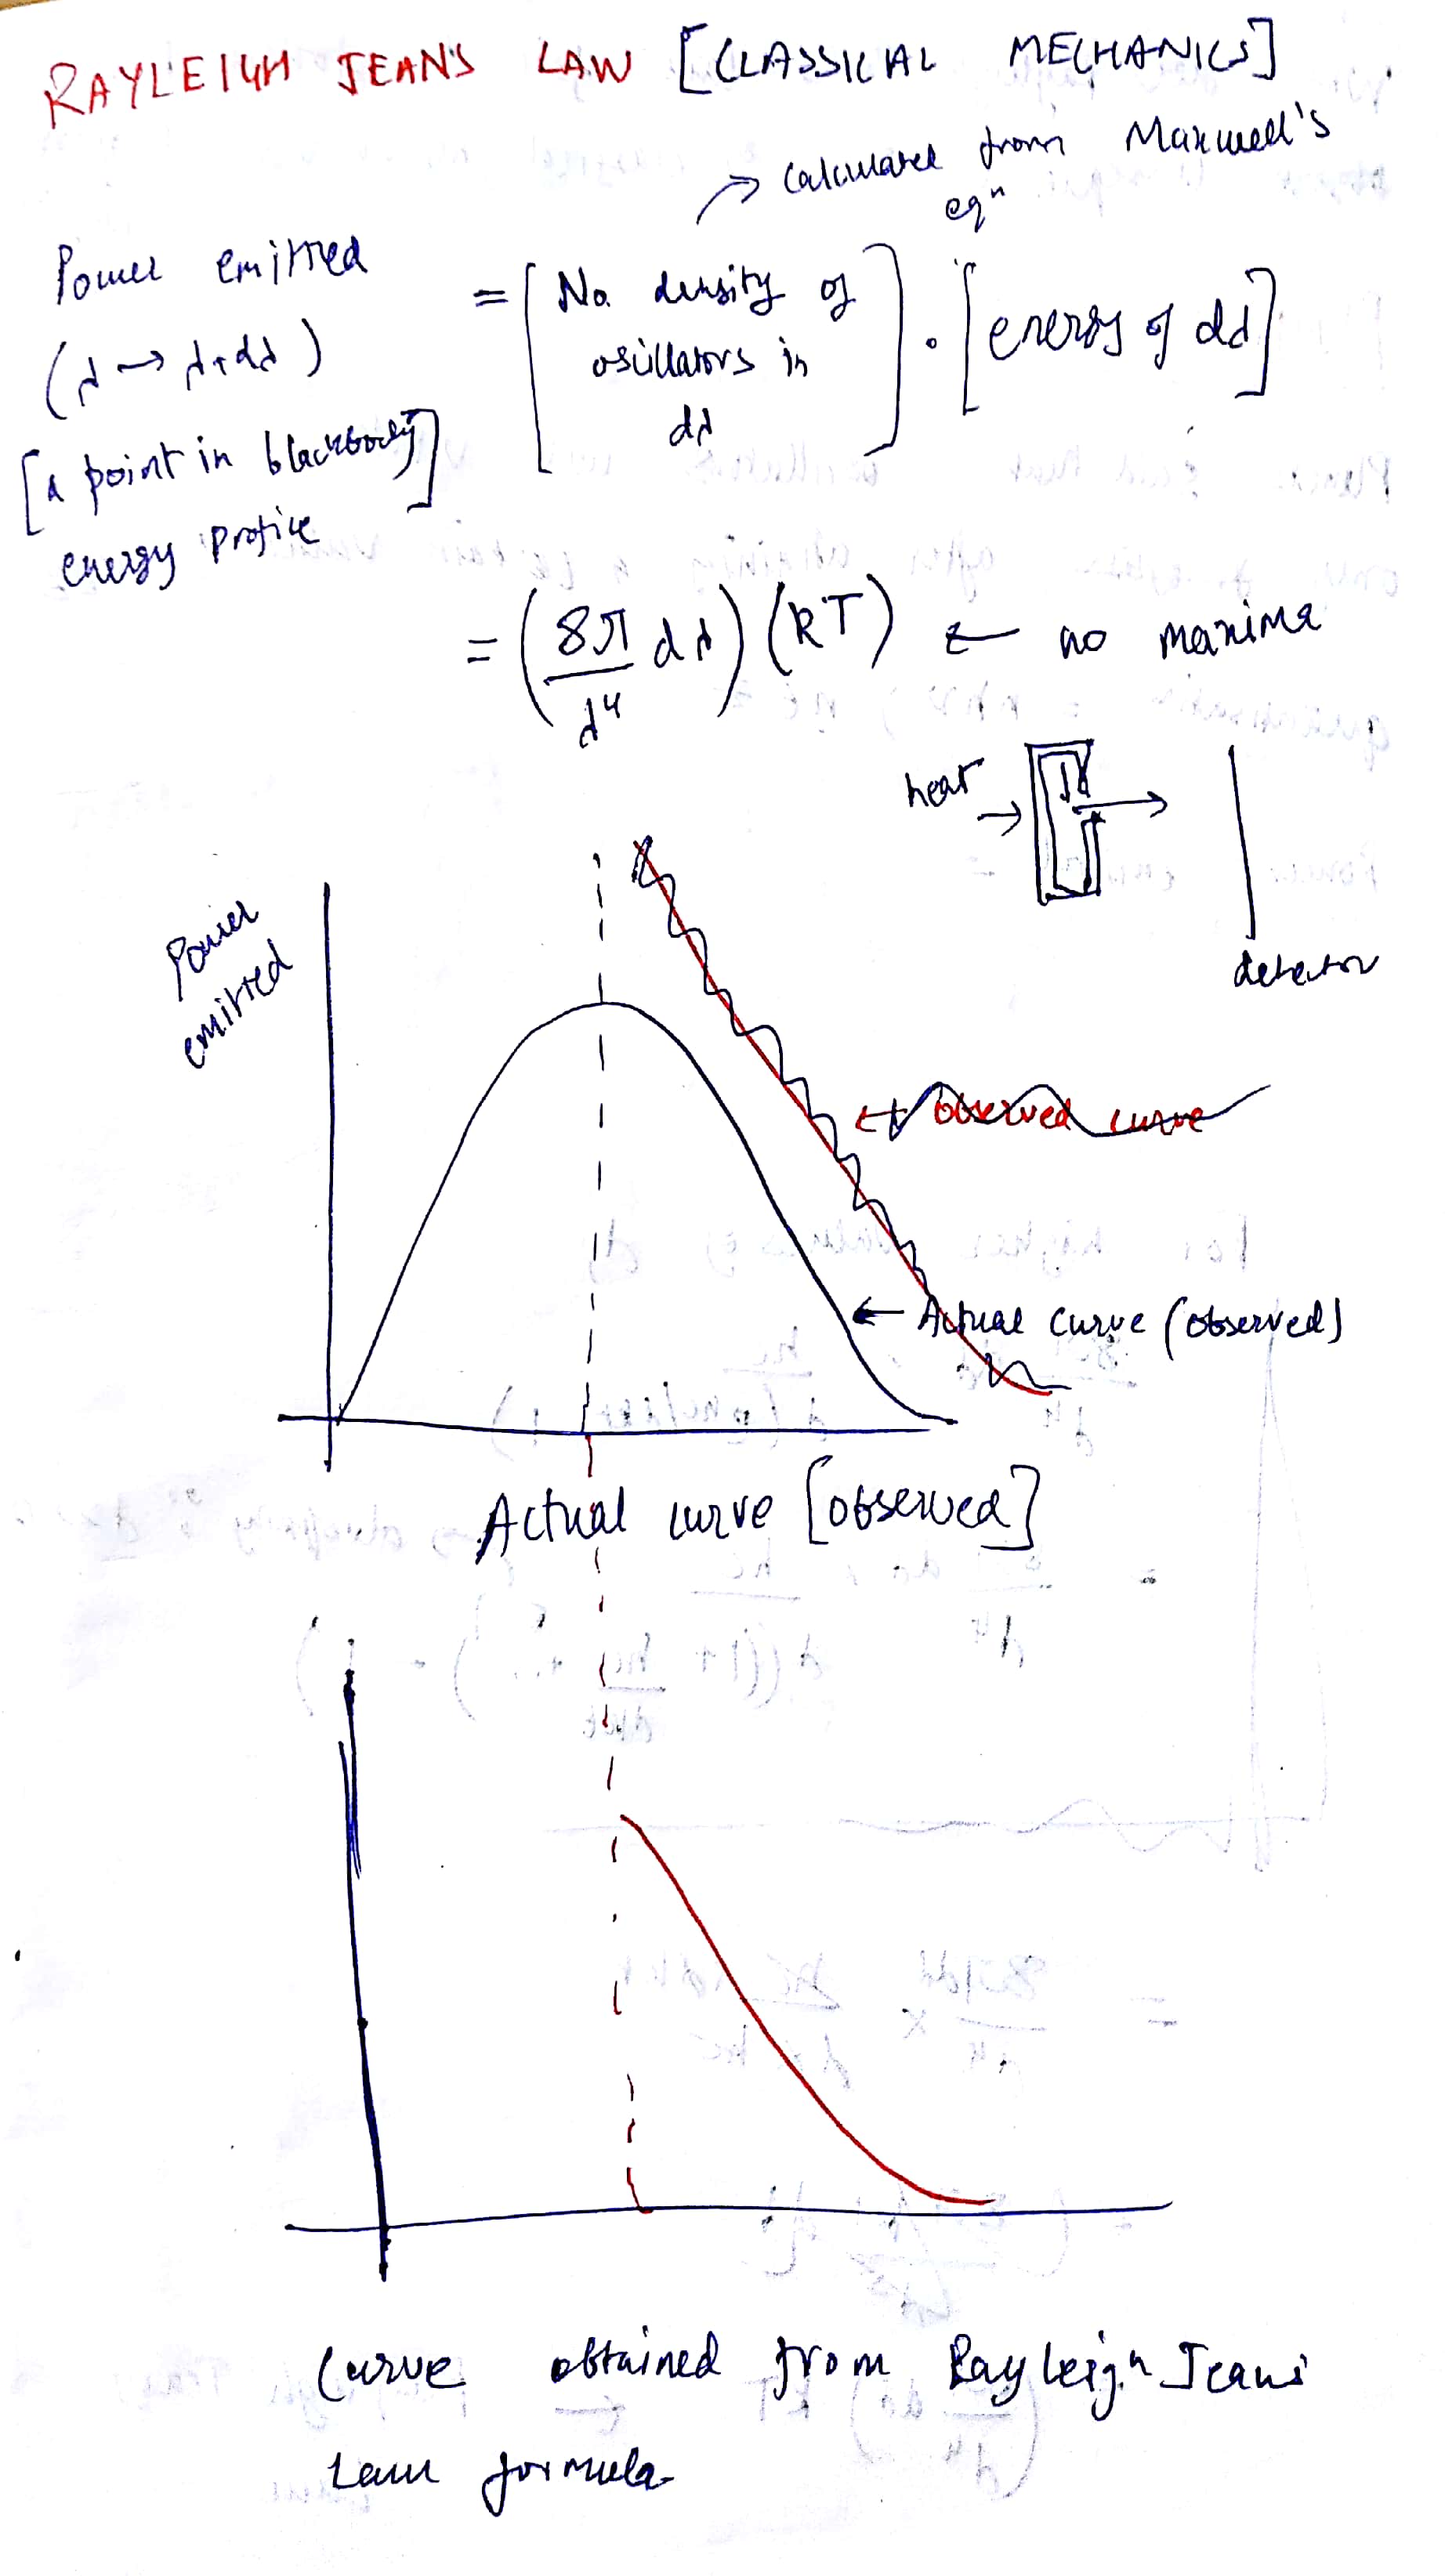 RAYLEIGH JEANS LAW [CLASSICAL MECHANICS]
→ calculated from Maxwell's
eqⁿ
Power emitted
(λ → λ+dλ)
[a point in blackbody]
energy profile
= [No. density of
oscillators in
dλ] . [energy of dλ]
= (8π/λ⁴ dλ) (kT) ← no maxima
heat →
detector
Power
emitted
← observed curve
← Actual curve (observed)
Actual curve [observed]
Curve obtained from Rayleigh Jeans
Law formula